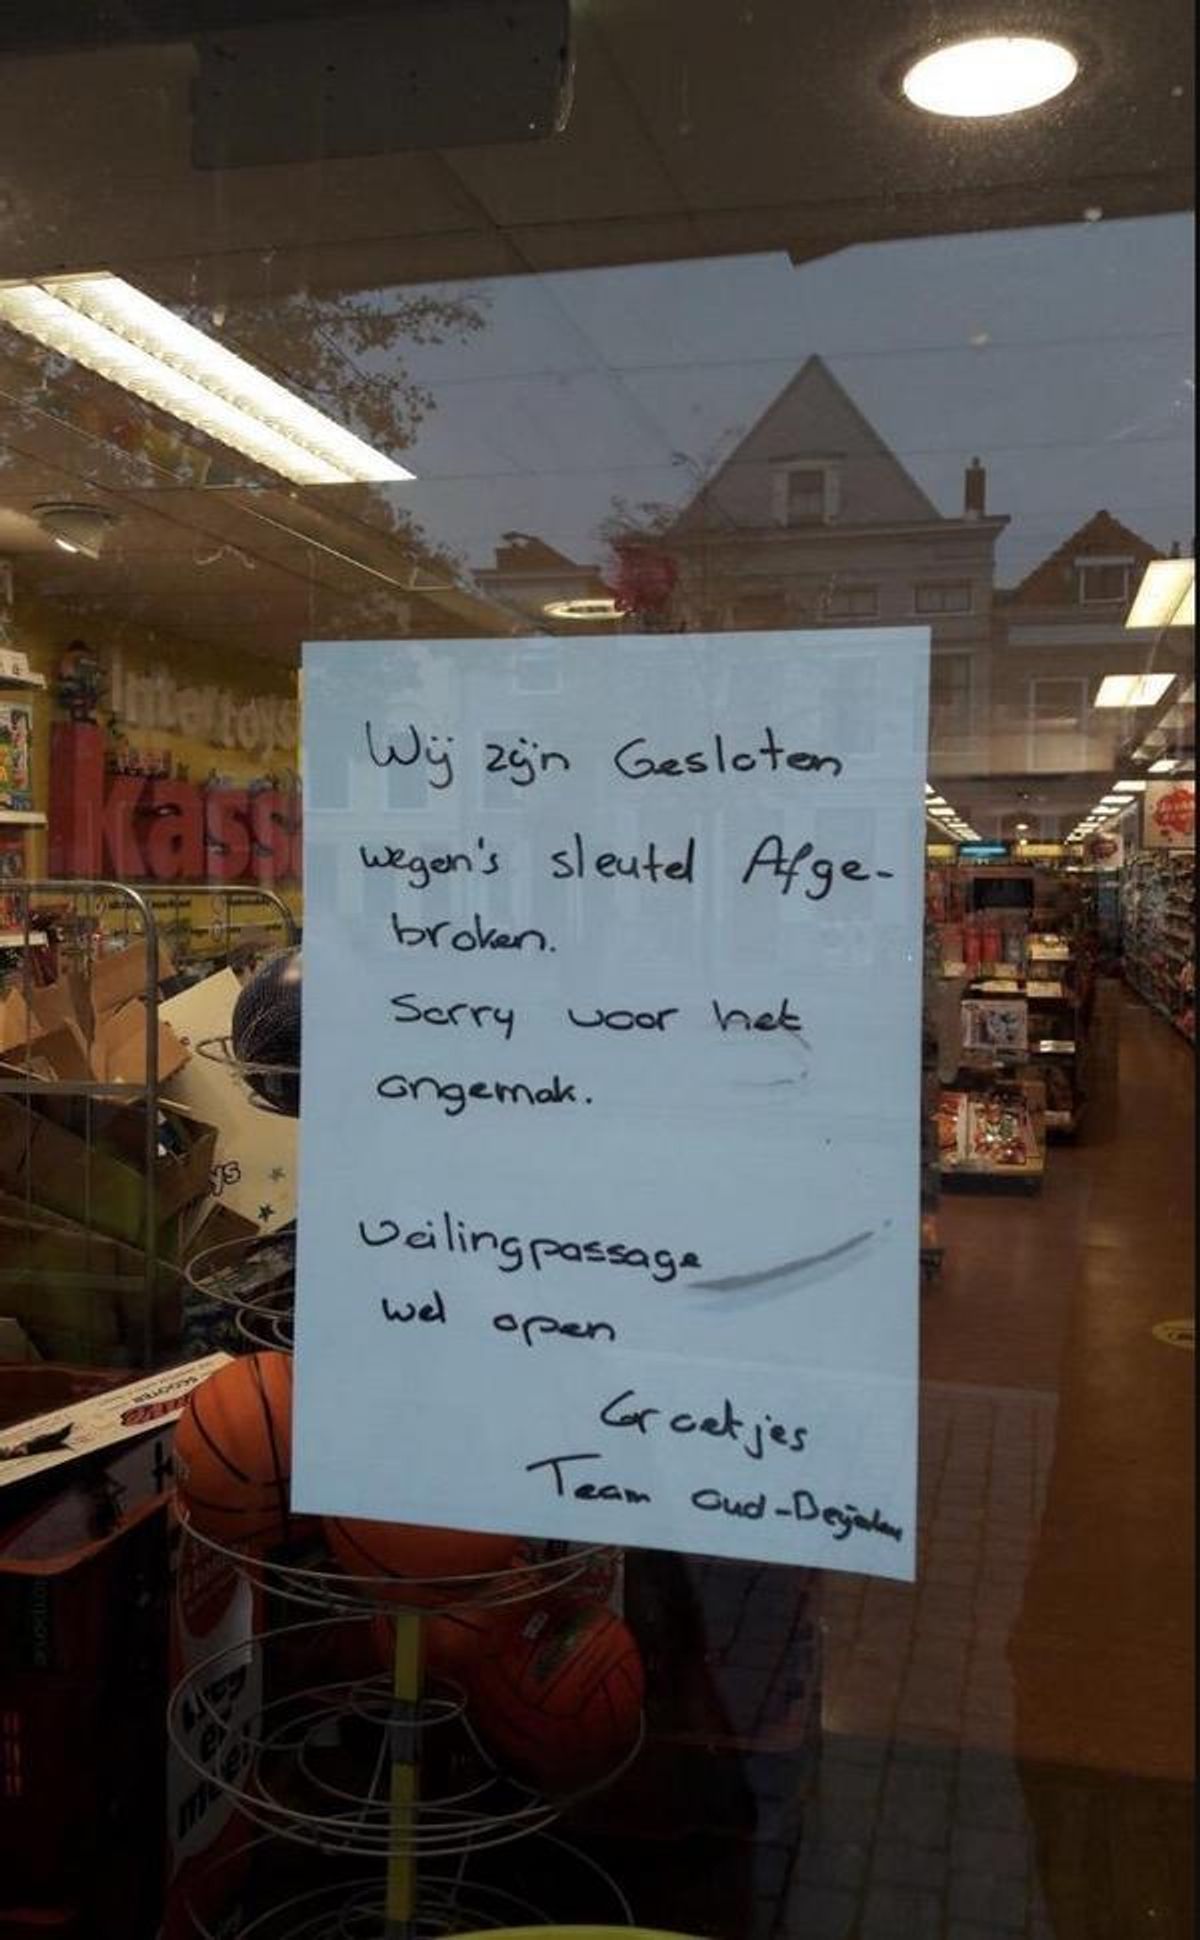 Intertoys
kass
Wij zijn Gesloten
wegen's sleutel Afge-
broken.
Sorry voor het
ongemak.
Veilingpassage
wel open
Groetjes
Team Oud-Beijerland
ys
SCOOTER